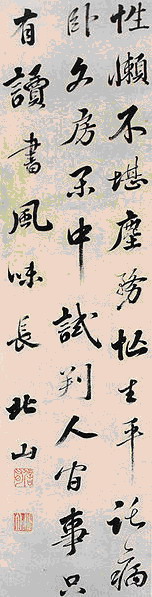 性懶不堪塵務忙生平託病
卧文房閑中試判人間事只
有讀書風味長 北山